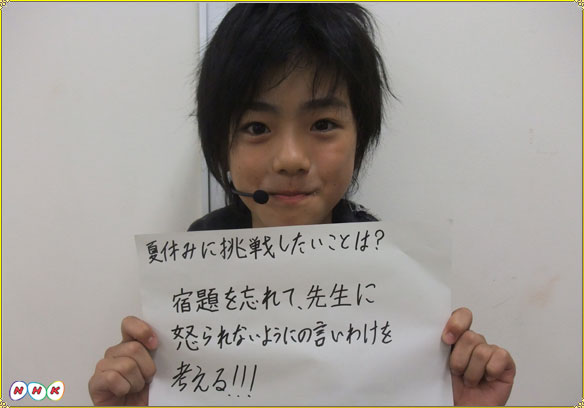 夏休みに挑戦したいことは?
宿題を忘れて、先生に
怒られないようにの言いわけを
考える!!!
NHK